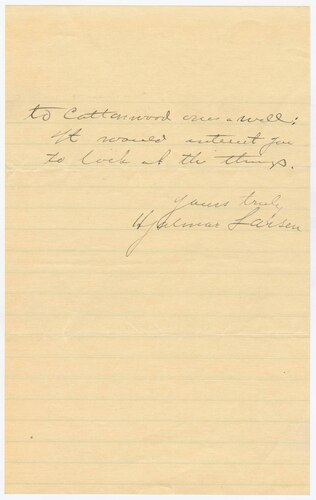 to Cottonwood ones as well;
It would interest you
to look at the things.
Yours truly
Hjalmar Larsen